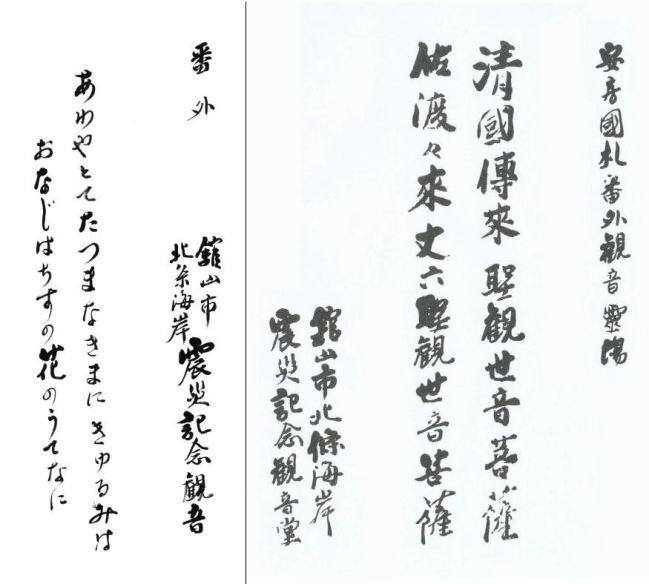 安房國札番外観音霊場
清國傳來聖観世音菩薩
佐渡々來丈六聖観世音菩薩
舘山市北條海岸
震災記念観音堂
番外
舘山市
北条海岸
震災記念観音
あわやとてたつまなきまにきゆるみは
おなじはちすの花のうてなに